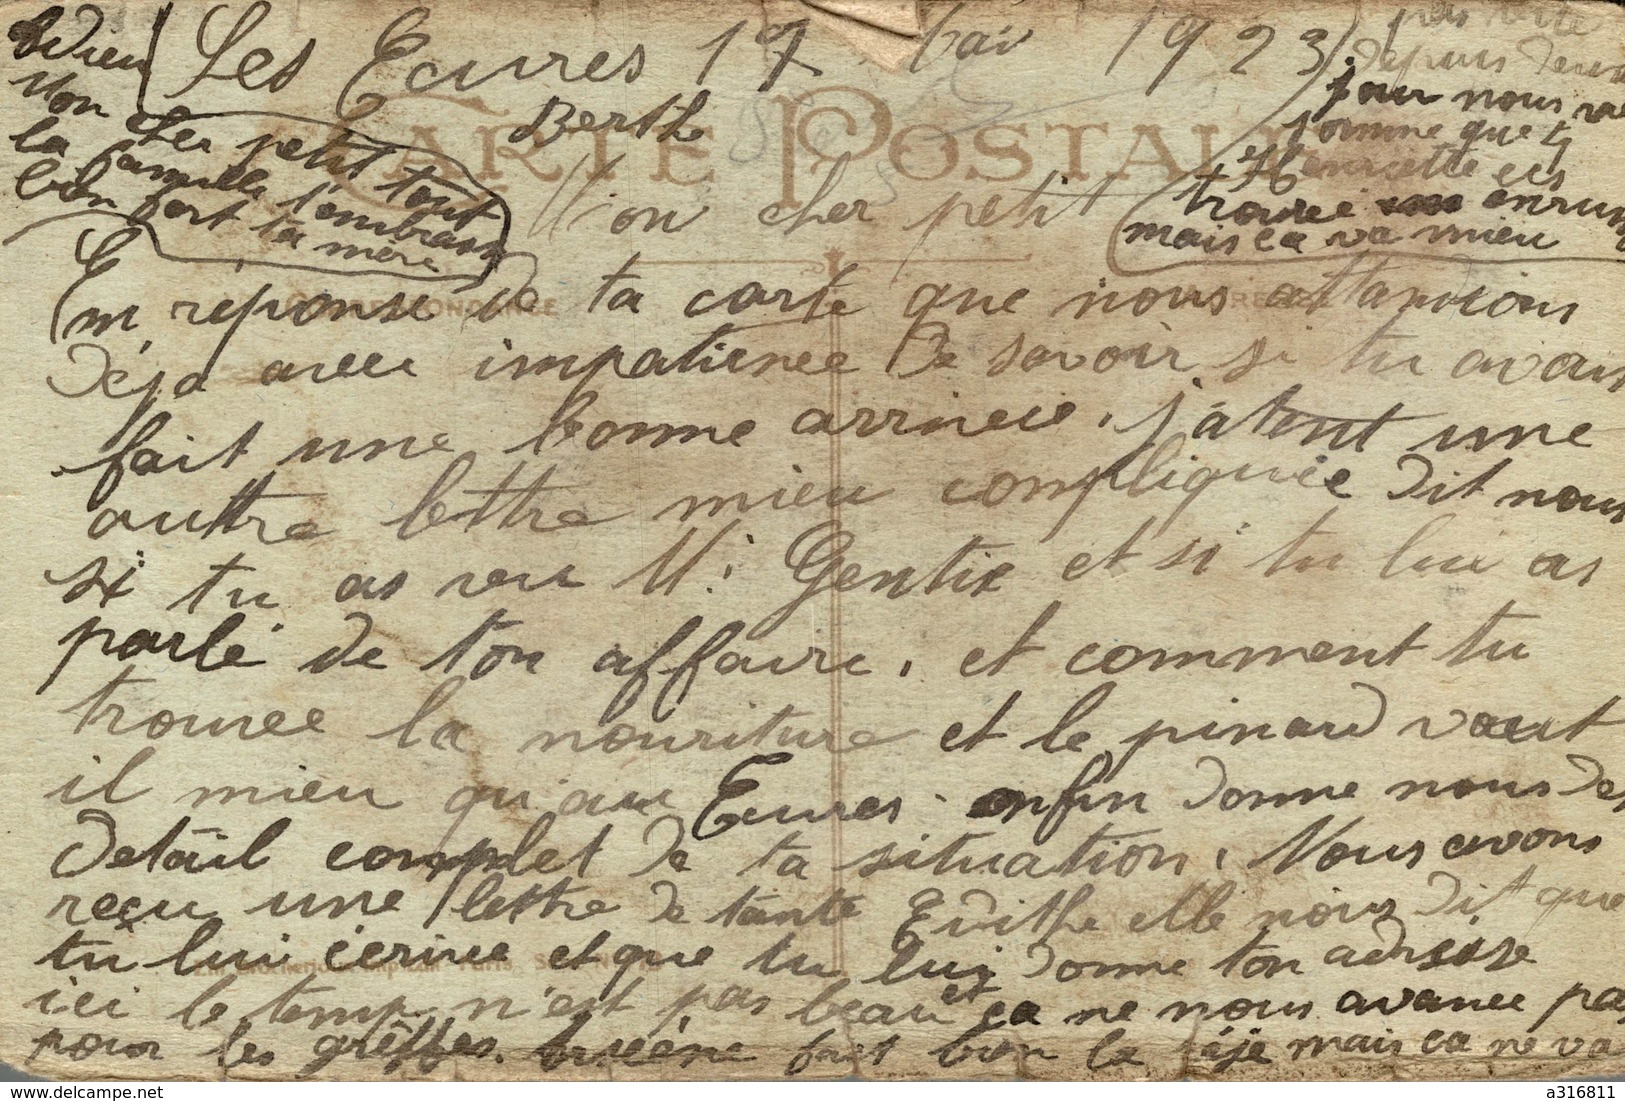 Les Ecures 17 Mai 1923
Berthe
CARTE POSTALE
Mon cher petit
En réponse de ta carte que nous attandions
Déja avec impatience De savoir si tu avais
fait une bonne arrivée. j'atent une
auttre lettre mieu compliquée Dit nous
si tu as veu M. Gentix et si tu lui as
parlé de ton affaire. et comment tu
trouvee la nouriture et le pinard vaut
il mieu qu'au Ecures. enfin Donne nous Des
Detail complet De ta situation. Nous avons
reçu une lettre De tante Edithe elle nous Dit que
tu lui écrivee et que tu lui Donne ton adresse
ici le temp n'est pas beau et ça ne nous avance pas
pour les grêffes. fait bien la mais ca ne va
pas
depuis
pour nous
comme que
Henriette est
trouvee enrum
mais ca va mieu
Adieu
Mon cher petit tout
la famille t'embrasse
bien fort ta mère
a316811